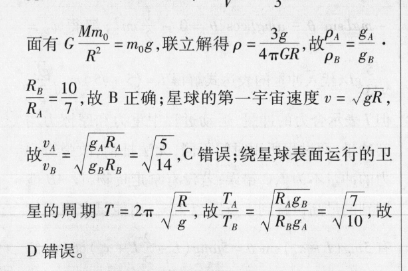 3
面有 G\frac{Mm_0}{R^2}=m_0g,联立解得 ρ=\frac{3g}{4πGR},故\frac{ρ_A}{ρ_B}=\frac{g_A}{g_B}·
\frac{R_B}{R_A}=\frac{10}{7},故 B 正确;星球的第一宇宙速度 v=\sqrt{gR},
故\frac{v_A}{v_B}=\sqrt{\frac{g_AR_A}{g_BR_B}}=\sqrt{\frac{5}{14}},C 错误;绕星球表面运行的卫
星的周期 T=2π\sqrt{\frac{R}{g}},故\frac{T_A}{T_B}=\sqrt{\frac{R_Ag_B}{R_Bg_A}}=\sqrt{\frac{7}{10}},故
D 错误。